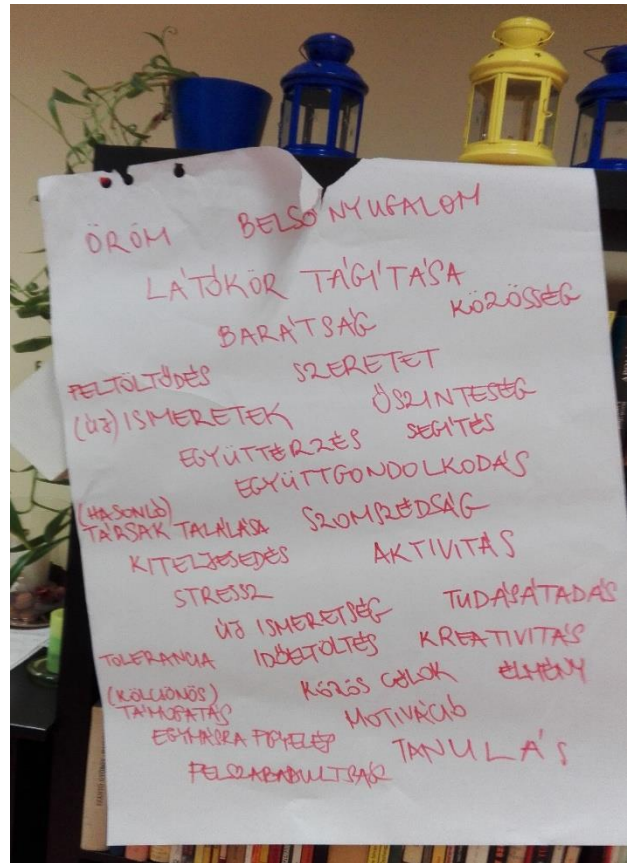 ÖRÖM BELSŐ NYUGALOM
LÁTÓKÖR TÁGÍTÁSA
BARÁTSÁG KÖZÖSSÉG
FELTÖLTŐDÉS SZERETET
(ÚJ) ISMERETEK ŐSZINTESÉG
EGYÜTTÉRZÉS SEGÍTÉS
EGYÜTTGONDOLKODÁS
(HASONLÓ)
TÁRSAK TALÁLÁSA SZOMSZÉDSÁG
KITELJESEDÉS AKTIVITÁS
STRESSZ
ÚJ ISMERETSÉG TUDÁSÁTADÁS
TOLERANCIA IDŐELTÖLTÉS KREATIVITÁS
(KÖLCSÖNÖS) KÖZÖS CÉLOK ÉLMÉNY
TÁMOGATÁS MOTIVÁCIÓ
EGYMÁSRA FIGYELÉS TANULÁS
FELSZABADULTSÁG